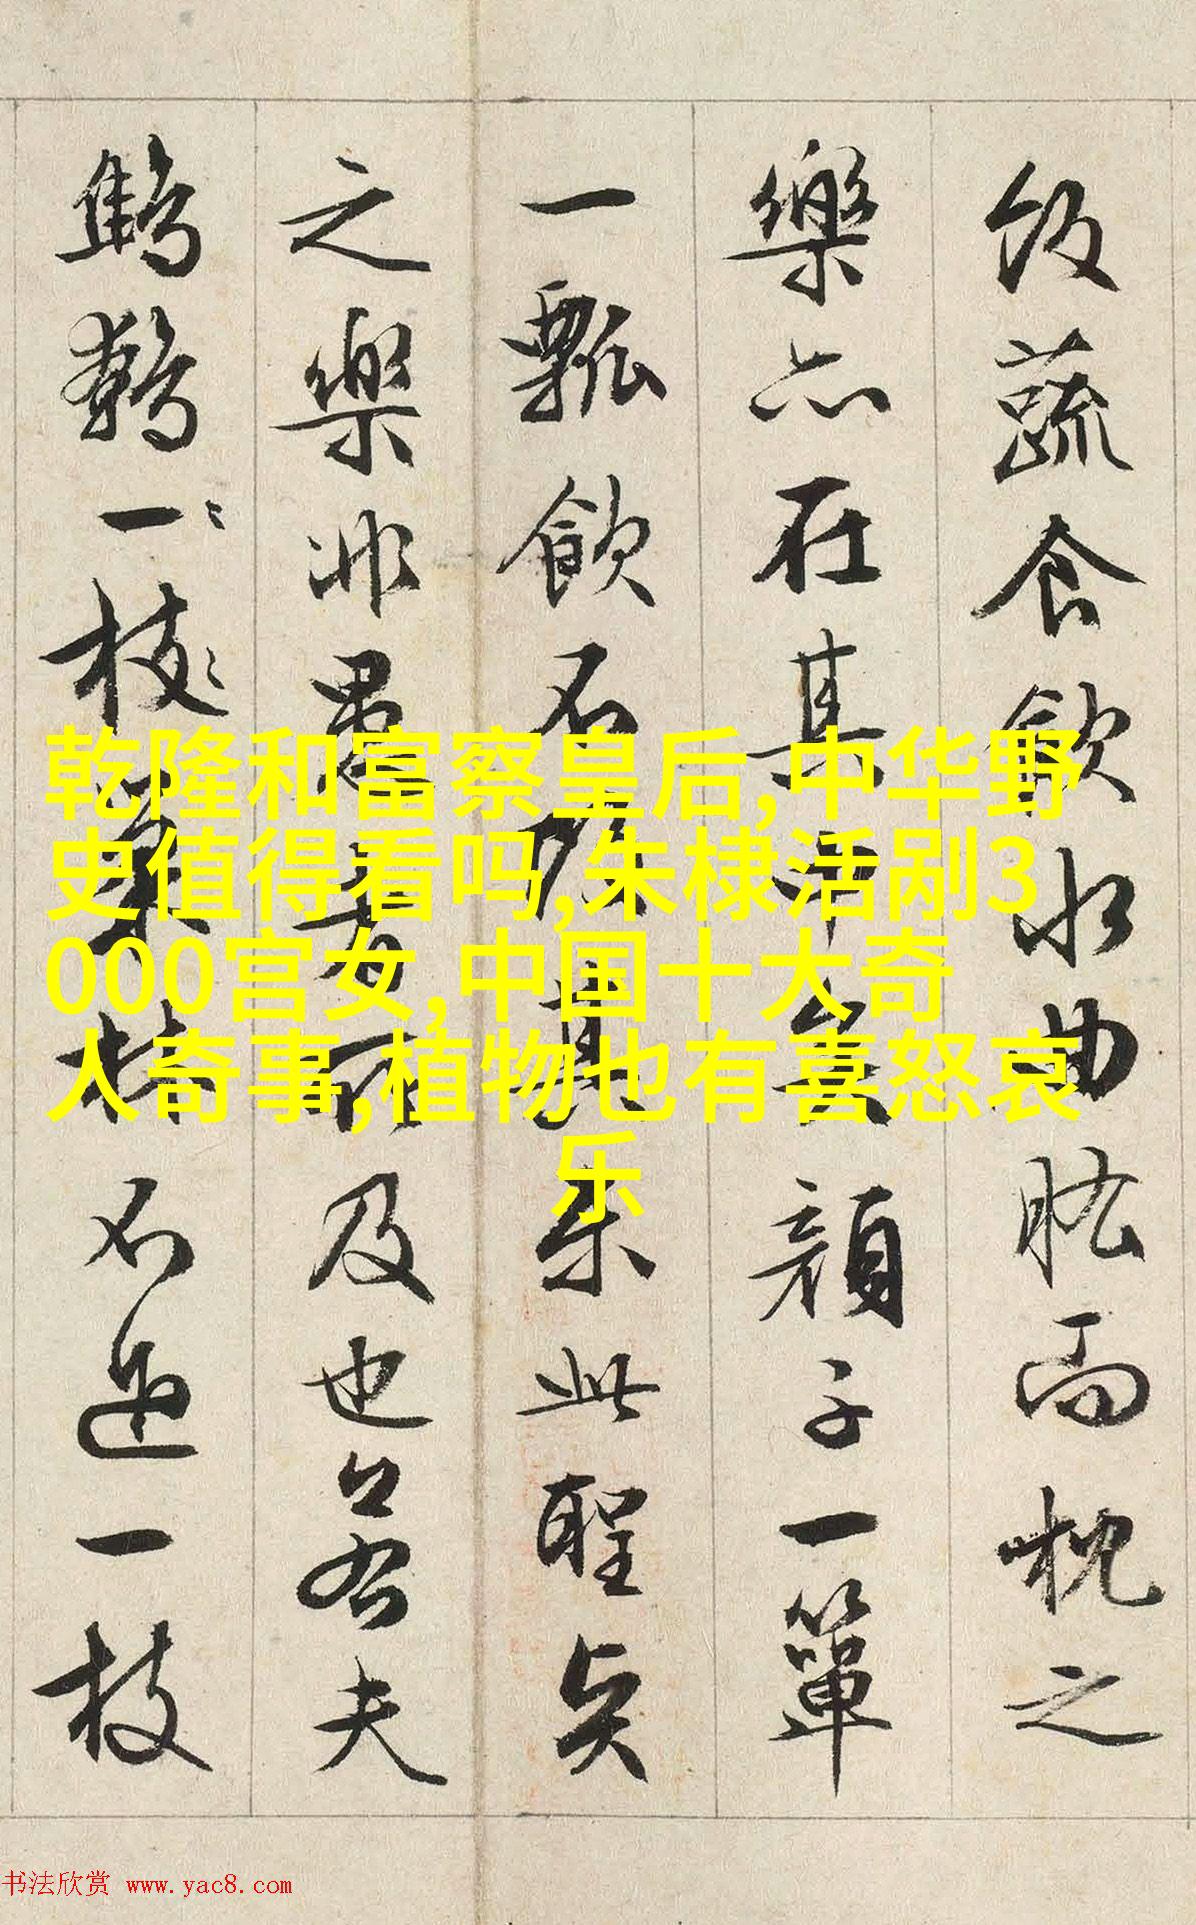 飯蔬食飲水曲肱而枕之
樂亦在其中矣顏子一簞
一瓢飲不改其樂此聖賢
之樂非愚者所及也若夫
鷦鷯一枝巢林不過一枝
乾隆和富察皇后,中华野
史值得看吗,朱棣活剐3
000宫女,中国十大奇
人奇事,植物也有喜怒哀
乐
书法欣赏 www.yac8.com